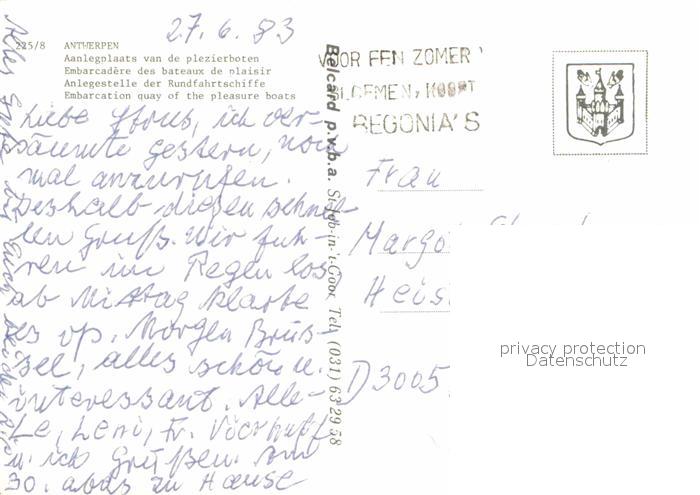 27.6.83
225/8 ANTWERPEN
Aanlegplaats van de plezierboten
Embarcadère des bateaux de plaisir
Anlegestelle der Rundfahrtschiffe
Embarcation quay of the pleasure boats
Liebe ich ver-
säumte gestern, noch
mal anzurufen.
Deshalb diesen schnel-
len Gruß. Wir fuh-
ren im Regen los,
ab Mittag klarte
es op. Morgen Brüs-
sel, alles schön u.
interessant. Alle-
Le, Leni, Fr.
u. ich Grüßen. Am
30. abds zu Hause
Alles
Belcard p.v.b.a. St-Job-in-'t-Goor, Tel. (031) 63 29 58
VOOR EEN ZOMER
BLOEMEN,
BEGONIA'S
Frau
D 3005
privacy protection
Datenschutz